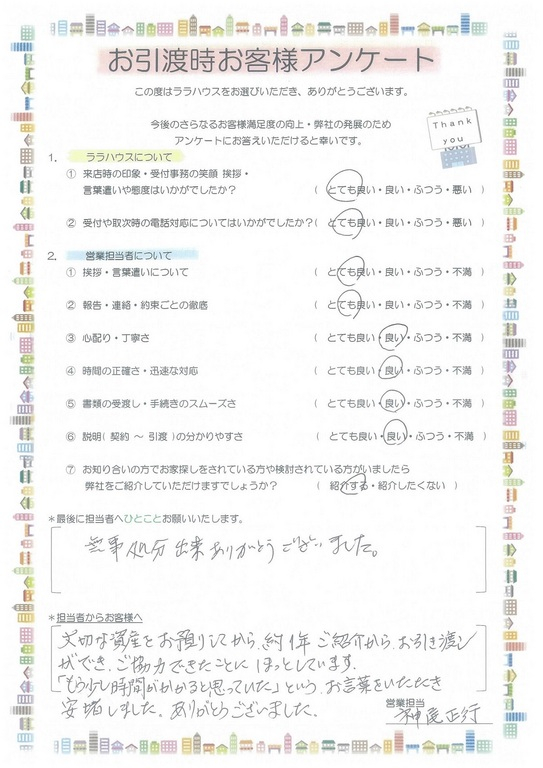 お引渡時お客様アンケート
この度はララハウスをお選びいただき、ありがとうございます。
今後のさらなるお客様満足度の向上・弊社の発展のため
アンケートにお答えいただけると幸いです。
Thank
you
1. ララハウスについて
① 来店時の印象・受付事務の笑顔 挨拶・
言葉遣いや態度はいかがでしたか? ( とても良い・良い・ふつう・悪い )
② 受付や取次時の電話対応についてはいかがでしたか?( とても良い・良い・ふつう・悪い )
2. 営業担当者について
① 挨拶・言葉遣いについて ( とても良い・良い・ふつう・不満 )
② 報告・連絡・約束ごとの徹底 ( とても良い・良い・ふつう・不満 )
③ 心配り・丁寧さ ( とても良い・良い・ふつう・不満 )
④ 時間の正確さ・迅速な対応 ( とても良い・良い・ふつう・不満 )
⑤ 書類の受渡し・手続きのスムーズさ ( とても良い・良い・ふつう・不満 )
⑥ 説明( 契約 ～ 引渡 )の分かりやすさ ( とても良い・良い・ふつう・不満 )
⑦ お知り合いの方でお家探しをされている方や検討されている方がいましたら
弊社をご紹介していただけますでしょうか? ( 紹介する・紹介したくない )
*最後に担当者へひとことお願いいたします。
無事処分出来ありがとうございました。
*担当者からお客様へ
大切な資産をお預りしてから、約1年ご紹介から、お引き渡し
ができ、ご協力できたことにほっとしています。
「もう少し時間がかかると思っていた」という、お言葉をいただき
安堵しました。ありがとうございました。
営業担当 正行